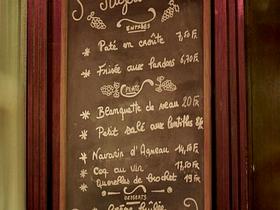 ENTRÉES
* Paté en croûte 7,50 F
* Frisée aux lardons 6,70 F
PLATS
* Blanquette de veau 20 F
* Petit salé aux lentilles
* Navarin d'Agneau 14,50 F
* Coq au vin 17,50 F
* Quenelles de brochet 19 F
DESSERTS
Crème Brûlée